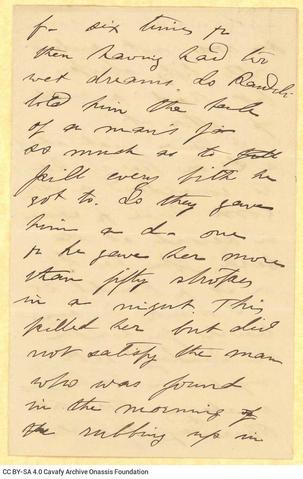 for six times or
then having had two
wet dreams. So Randi
told him the tale
of a man's
so much as to
kill every he
got to. So they gave
him a d— one
& he gave her more
than fifty strokes
in a night. This
killed her but did
not satisfy the man
who was found
in the morning
rubbing up in
CC BY-SA 4.0 Cavafy Archive Onassis Foundation